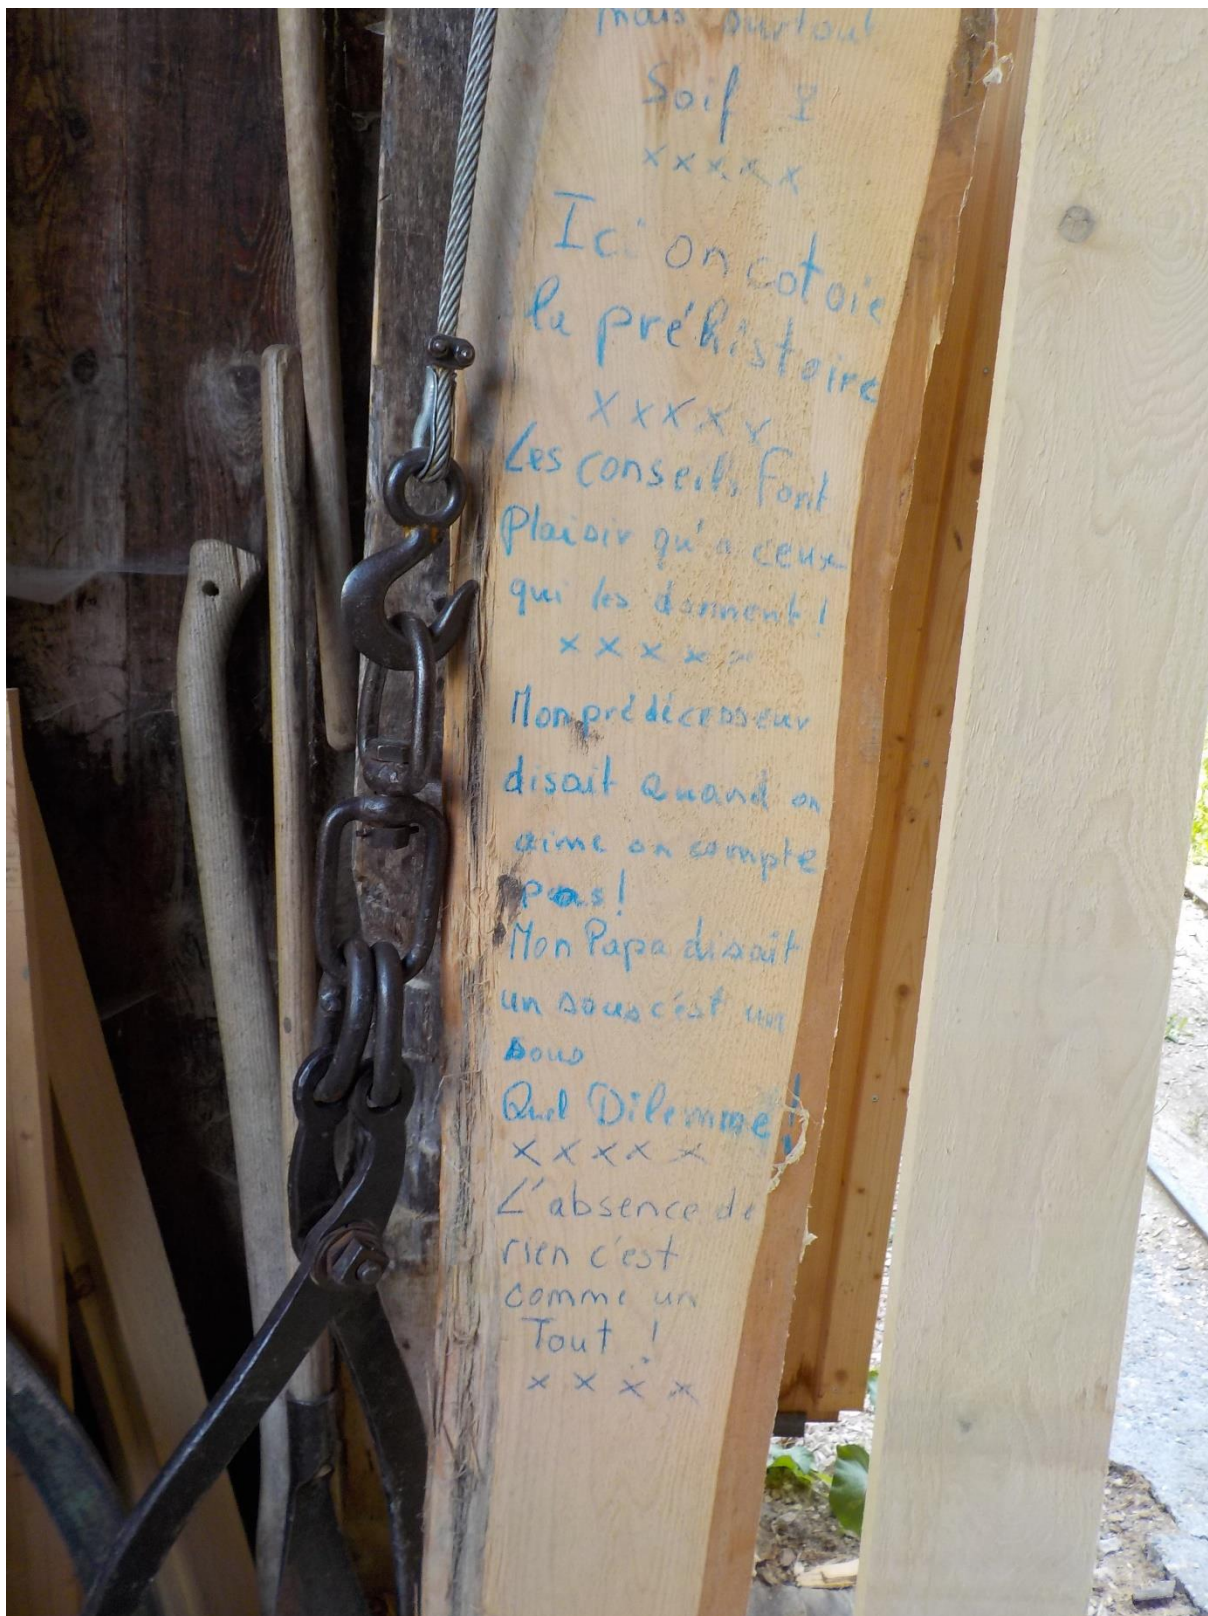 mais surtout
Soif !
x x x x x
Ici on cotoie
la préhistoire
x x x x x
Les conseils font
plaisir qu'a ceux
qui les donnent !
x x x x x
Mon prédécesseur
disait Quand on
aime on compte
pas !
Mon Papa disait
un sous c'est un
sous
Quel Dilemme !
x x x x x
L'absence de
rien c'est
comme un
Tout !
x x x x